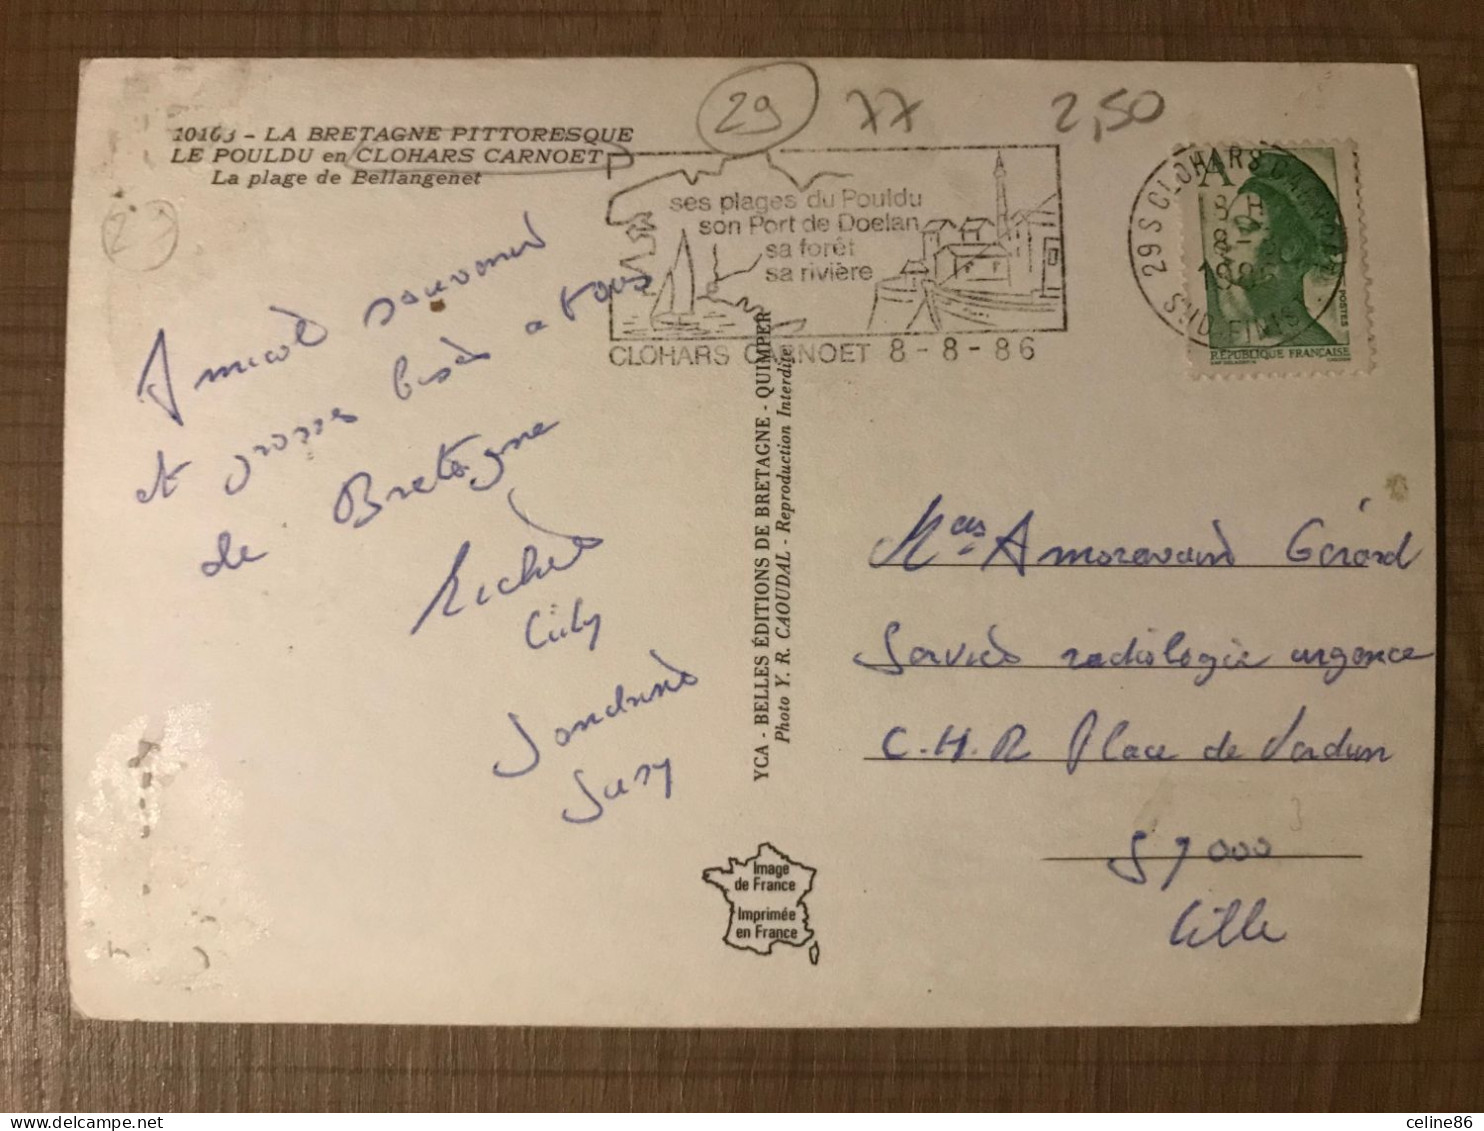 29 77 2,50
10163 - LA BRETAGNE PITTORESQUE
LE POULDU en CLOHARS CARNOET
La plage de Bellangenet
29
ses plages du Pouldu
son Port de Doelan
sa forêt
sa rivière
CLOHARS CARNOET 8-8-86
29 S CLOHARS CARNOET
8 H
8-8
1986
SUD FINIST.
A
POSTES
RÉPUBLIQUE FRANÇAISE
Amical souvenir
et grosses bises a tous
de Bretagne
Michel
Lily
Sandrine
Susy
YCA - BELLES ÉDITIONS DE BRETAGNE - QUIMPER
Photo Y. R. CAOUDAL - Reproduction Interdite
Gérard
Service radiologie urgence
C.H.R Place de Verdun
59000
Lille
Image
de France
Imprimée
en France
celine86